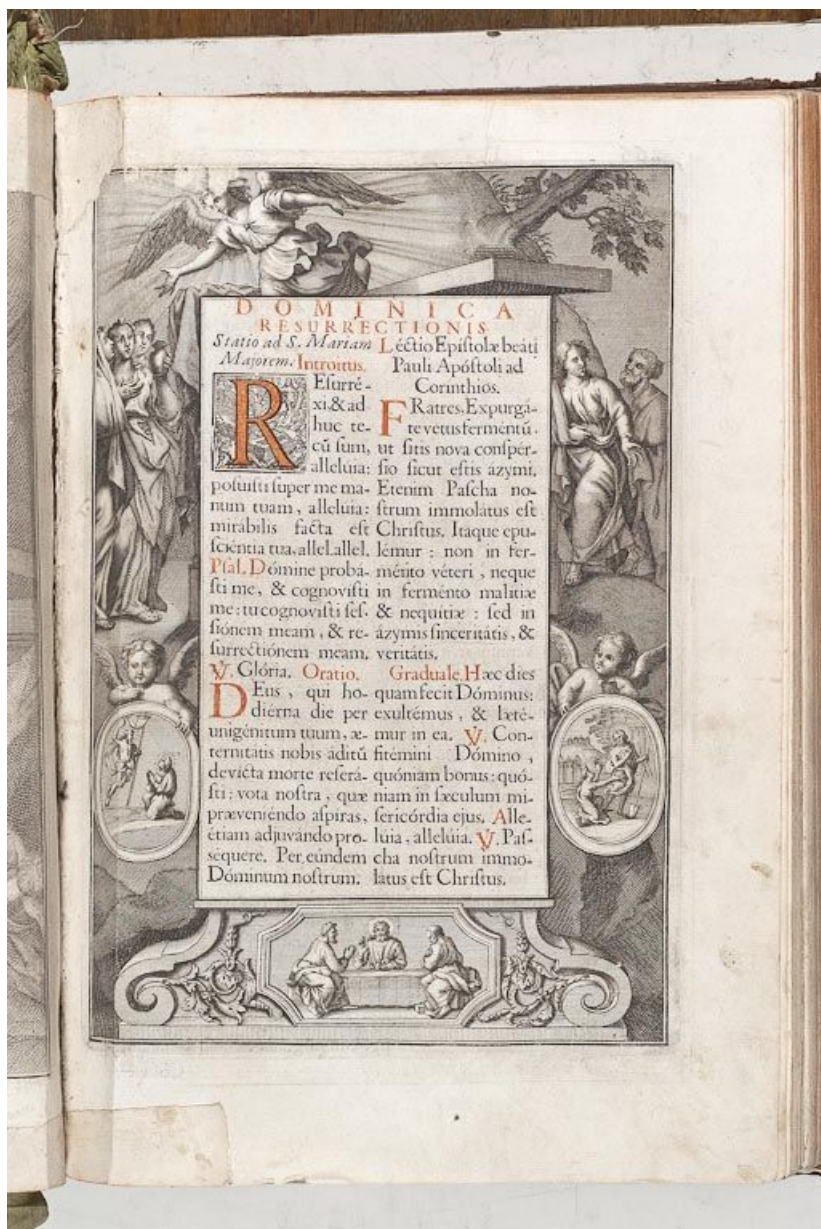 DOMINICA
RESURRECTIONIS
Statio ad S. Mariam
Majorem. Introitus.
REſurré-
xi, & ad
huc te-
cũ ſum,
allelúia:
poſuiſti ſuper me ma-
num tuam, allelúia:
mirábilis facta eſt
ſciéntia tua, allel. allel.
Pſal. Dómine probá-
ſti me, & cognovíſti
me: tu cognovíſti ſeſ-
ſiónem meam, & re-
ſurrectiónem meam.
℣. Glória. Oratio.
DEus, qui ho-
diérna die per
unigénitum tuum, æ-
ternitátis nobis áditũ
devícta morte reſerá-
ſti: vota noſtra, quæ
præveniéndo aſpíras,
étiam adjuvándo pro-
ſéquere. Per eúndem
Dóminum noſtrum.
Léctio Epíſtolæ beáti
Pauli Apóſtoli ad
Corínthios.
FRatres, Expurgá-
te vetus ferméntũ,
ut ſitis nova conſpér-
ſio ſicut eſtis ázymi.
Etenim Paſcha no-
ſtrum immolátus eſt
Chriſtus. Itaque epu-
lémur: non in fer-
méto véteri, neque
in ferménto malítiæ
& nequítiæ: ſed in
ázymis ſinceritátis, &
veritátis.
Graduale. Hæc dies
quam fecit Dóminus:
exultémus, & læté-
mur in ea. ℣. Con-
fitémini Dómino,
quóniam bonus: quó-
niam in ſæculum mi-
ſericórdia ejus. Alle-
lúia, allelúia. ℣. Paſ-
cha noſtrum immo-
látus eſt Chriſtus.